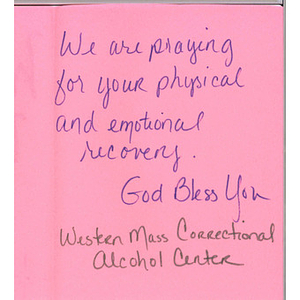 We are praying
for your physical
and emotional
recovery.
God Bless You
Western Mass Correctional
Alcohol Center